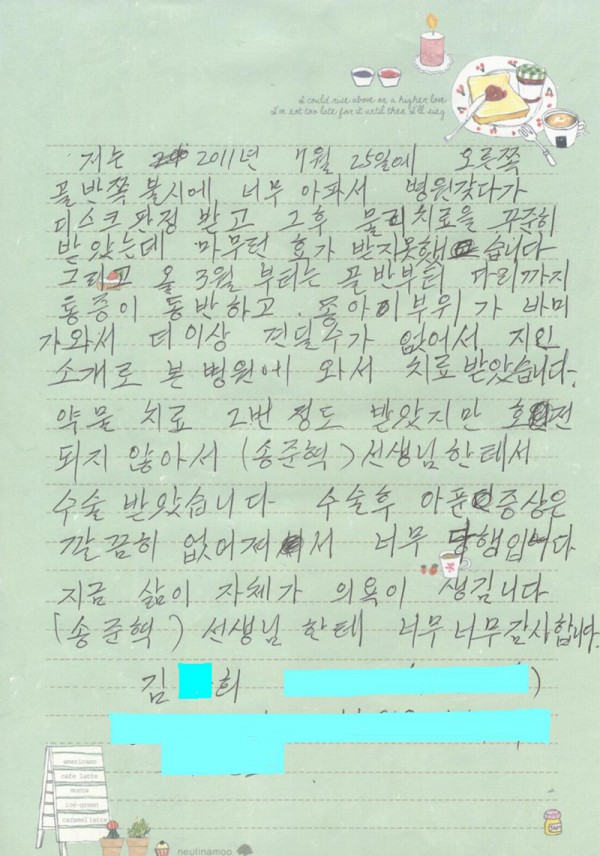 I could rise above on a higher love
I'm not too late for it until then I'll stay
저는 2011년 7월 25일에 오른쪽
골반쪽 불시에 너무 아파서 병원갖다가
디스크판정 받고 그후 물리치료을 꾸준히
받았는데 마무런 효가 받지못했습니다
그리고 올 3월 부터는 골반부터 다리까지
통증이 동반하고. 종아이부위가 바미
가와서 더이상 견딜수가 없어서, 지인
소개로 본 병원에 와서 치료받았습니다.
약물 치료 2번 정도 받았지만 호전
되지 않아서 (송준혁)선생님한테서
수술 받았습니다 수술후 아푼증상은
깔끔히 없어져서 너무 다행입니다
지금 삶이 자체가 의욕이 생깁니다
(송준혁) 선생님 한테 너무너무감사합니다.
김 희 )
americano
cafe latte
mocha
ice-green
caramel latte
JAM
neutinamoo